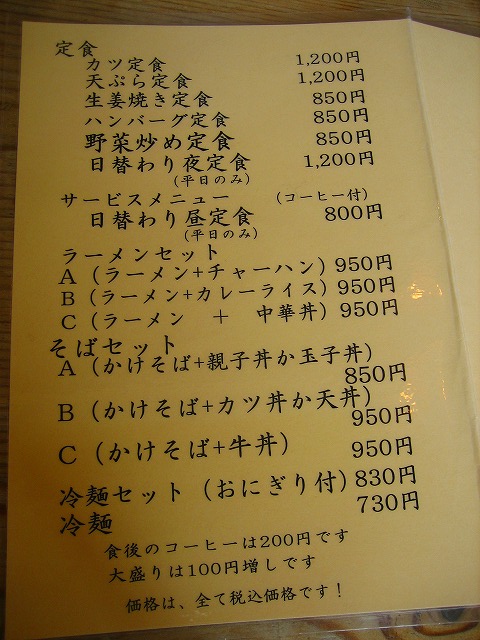 定食
カツ定食 1,200円
天ぷら定食 1,200円
生姜焼き定食 850円
ハンバーグ定食 850円
野菜炒め定食 850円
日替わり夜定食 1,200円
(平日のみ)
サービスメニュー (コーヒー付)
日替わり昼定食 800円
(平日のみ)
ラーメンセット
A (ラーメン+チャーハン) 950円
B (ラーメン+カレーライス) 950円
C (ラーメン + 中華丼) 950円
そばセット
A (かけそば+親子丼か玉子丼)
850円
B (かけそば+カツ丼か天丼)
950円
C (かけそば+牛丼) 950円
冷麺セット (おにぎり付) 830円
冷麺 730円
食後のコーヒーは200円です
大盛りは100円増しです
価格は、全て税込価格です!